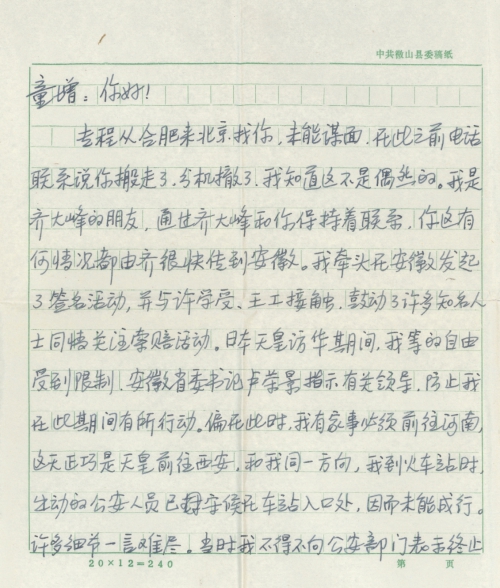 中共微山县委稿纸
童增：你好！
专程从合肥来北京找你，未能谋面。在此之前电话
联系说你搬走了，分机撤了，我知道这不是偶然的。我是
齐大峰的朋友，通过齐大峰和你保持着联系，你这有
何情况都由齐很快传到安徽。我牵头在安徽发起
了签名活动，并与许学受、王工接触，鼓动了许多知名人
士同情关注索赔活动。日本天皇访华期间，我等的自由
受到限制，安徽省委书记卢荣景指示有关领导，防止我
在此期间有所行动。偏在此时，我有家事必须前往河南，
这天正巧是天皇前往西安，和我同一方向，我到火车站时，
出动的公安人员已守候在车站入口处，因而未能成行。
许多细节一言难尽。当时我不得不向公安部门表示终止
20×12=240
第 页